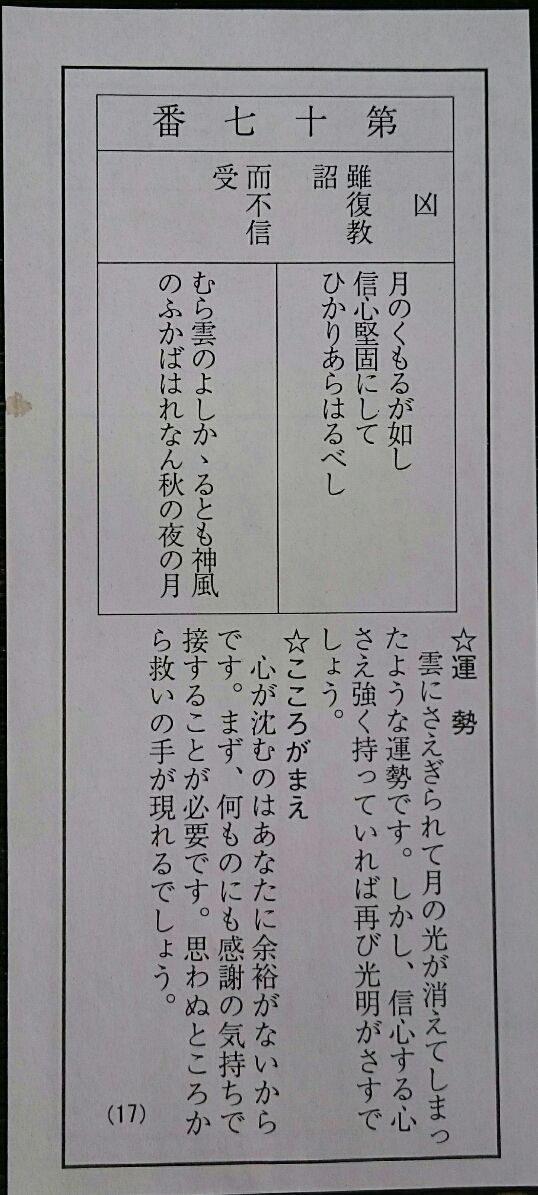 第十七番
凶
雖復教
詔
而不信
受
月のくもるが如し
信心堅固にして
ひかりあらはるべし
むら雲のよしかゝるとも神風
のふかばはれなん秋の夜の月
☆運　勢
雲にさえぎられて月の光が消えてしまっ
たような運勢です。しかし、信心する心
さえ強く持っていれば再び光明がさすで
しょう。
☆こころがまえ
心が沈むのはあなたに余裕がないから
です。まず、何ものにも感謝の気持ちで
接することが必要です。思わぬところか
ら救いの手が現れるでしょう。
(17)